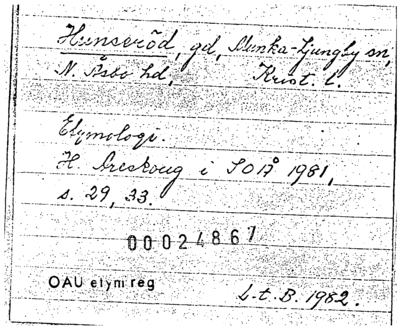 Hunseröd, gd, Munka-Ljungby sn,
N. Åsbo hd, Krist. l.
Etymologi.
H Areskoug i SOÅ 1981,
s. 29, 33.
00024867
OAU etym reg
L.t.B. 1982.